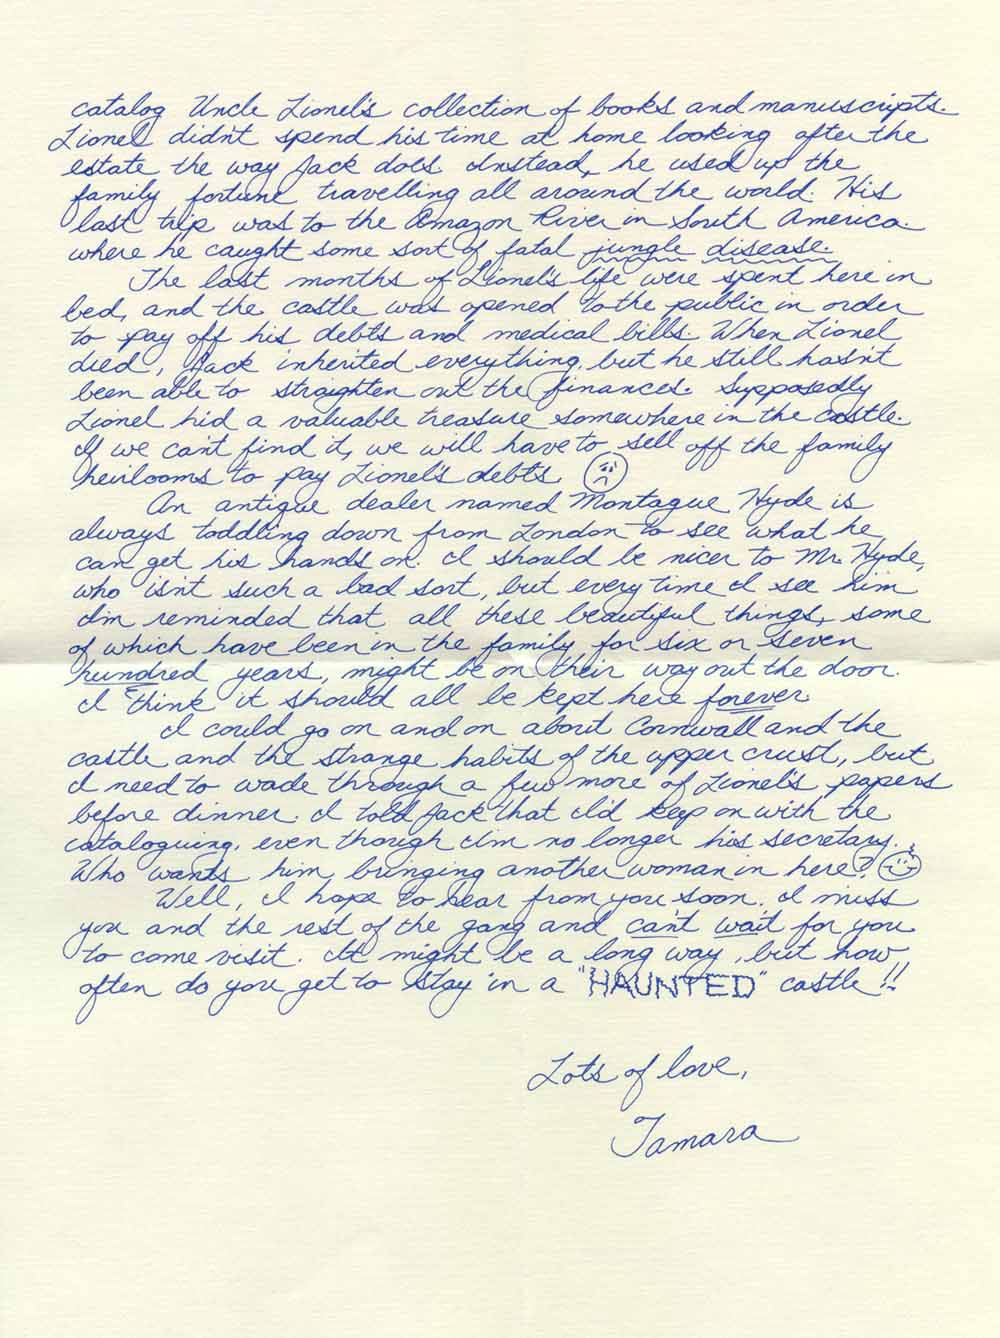 catalog Uncle Lionel's collection of books and manuscripts.
Lionel didn't spend his time at home looking after the
estate the way Jack does. Instead, he used up the
family fortune travelling all around the world. His
last trip was to the Amazon River in South America.
where he caught some sort of fatal jungle disease.
The last months of Lionel's life were spent here in
bed, and the castle was opened to the public in order
to pay off his debts and medical bills. When Lionel
died, Jack inherited everything, but he still hasn't
been able to straighten out the finances. Supposedly
Lionel hid a valuable treasure somewhere in the castle.
If we can't find it, we will have to sell off the family
heirlooms to pay Lionel's debts
An antique dealer named Montague Hyde is
always toddling down from London to see what he
can get his hands on. I should be nicer to Mr. Hyde,
who isn't such a bad sort, but every time I see him
I'm reminded that all these beautiful things, some
of which have been in the family for six or seven
hundred years, might be on their way out the door.
I think it should all be kept here forever.
I could go on and on about Cornwall and the
castle and the strange habits of the upper crust, but
I need to wade through a few more of Lionel's papers
before dinner. I told Jack that I'd keep on with the
cataloguing, even though I'm no longer his secretary.
Who wants him bringing another woman in here?
Well, I hope to hear from you soon. I miss
you and the rest of the gang and can't wait for you
to come visit. It might be a long way, but how
often do you get to stay in a "HAUNTED" castle!!
Lots of love,
Tamara